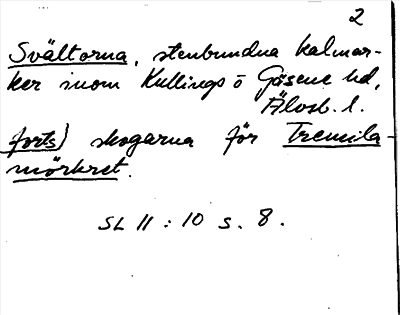 2
Svältorna, stenbundna kalmar-
ker inom Kullings o Gäsene hd,
Älvsb. l.
forts) skogarna för Tremila
mörkret.
SL 11 : 10 s. 8.